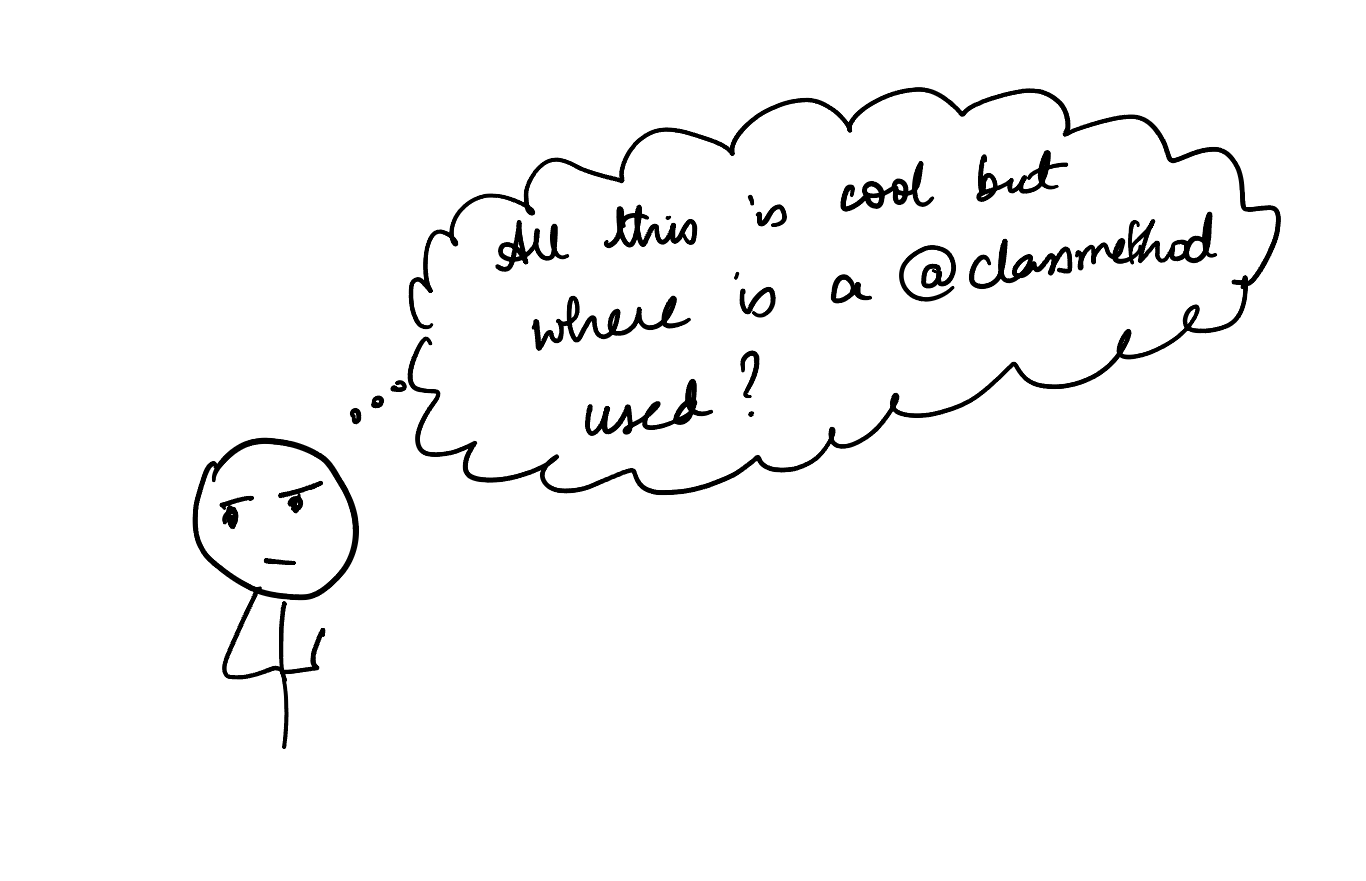 All this is cool but
where is a @classmethod
used?